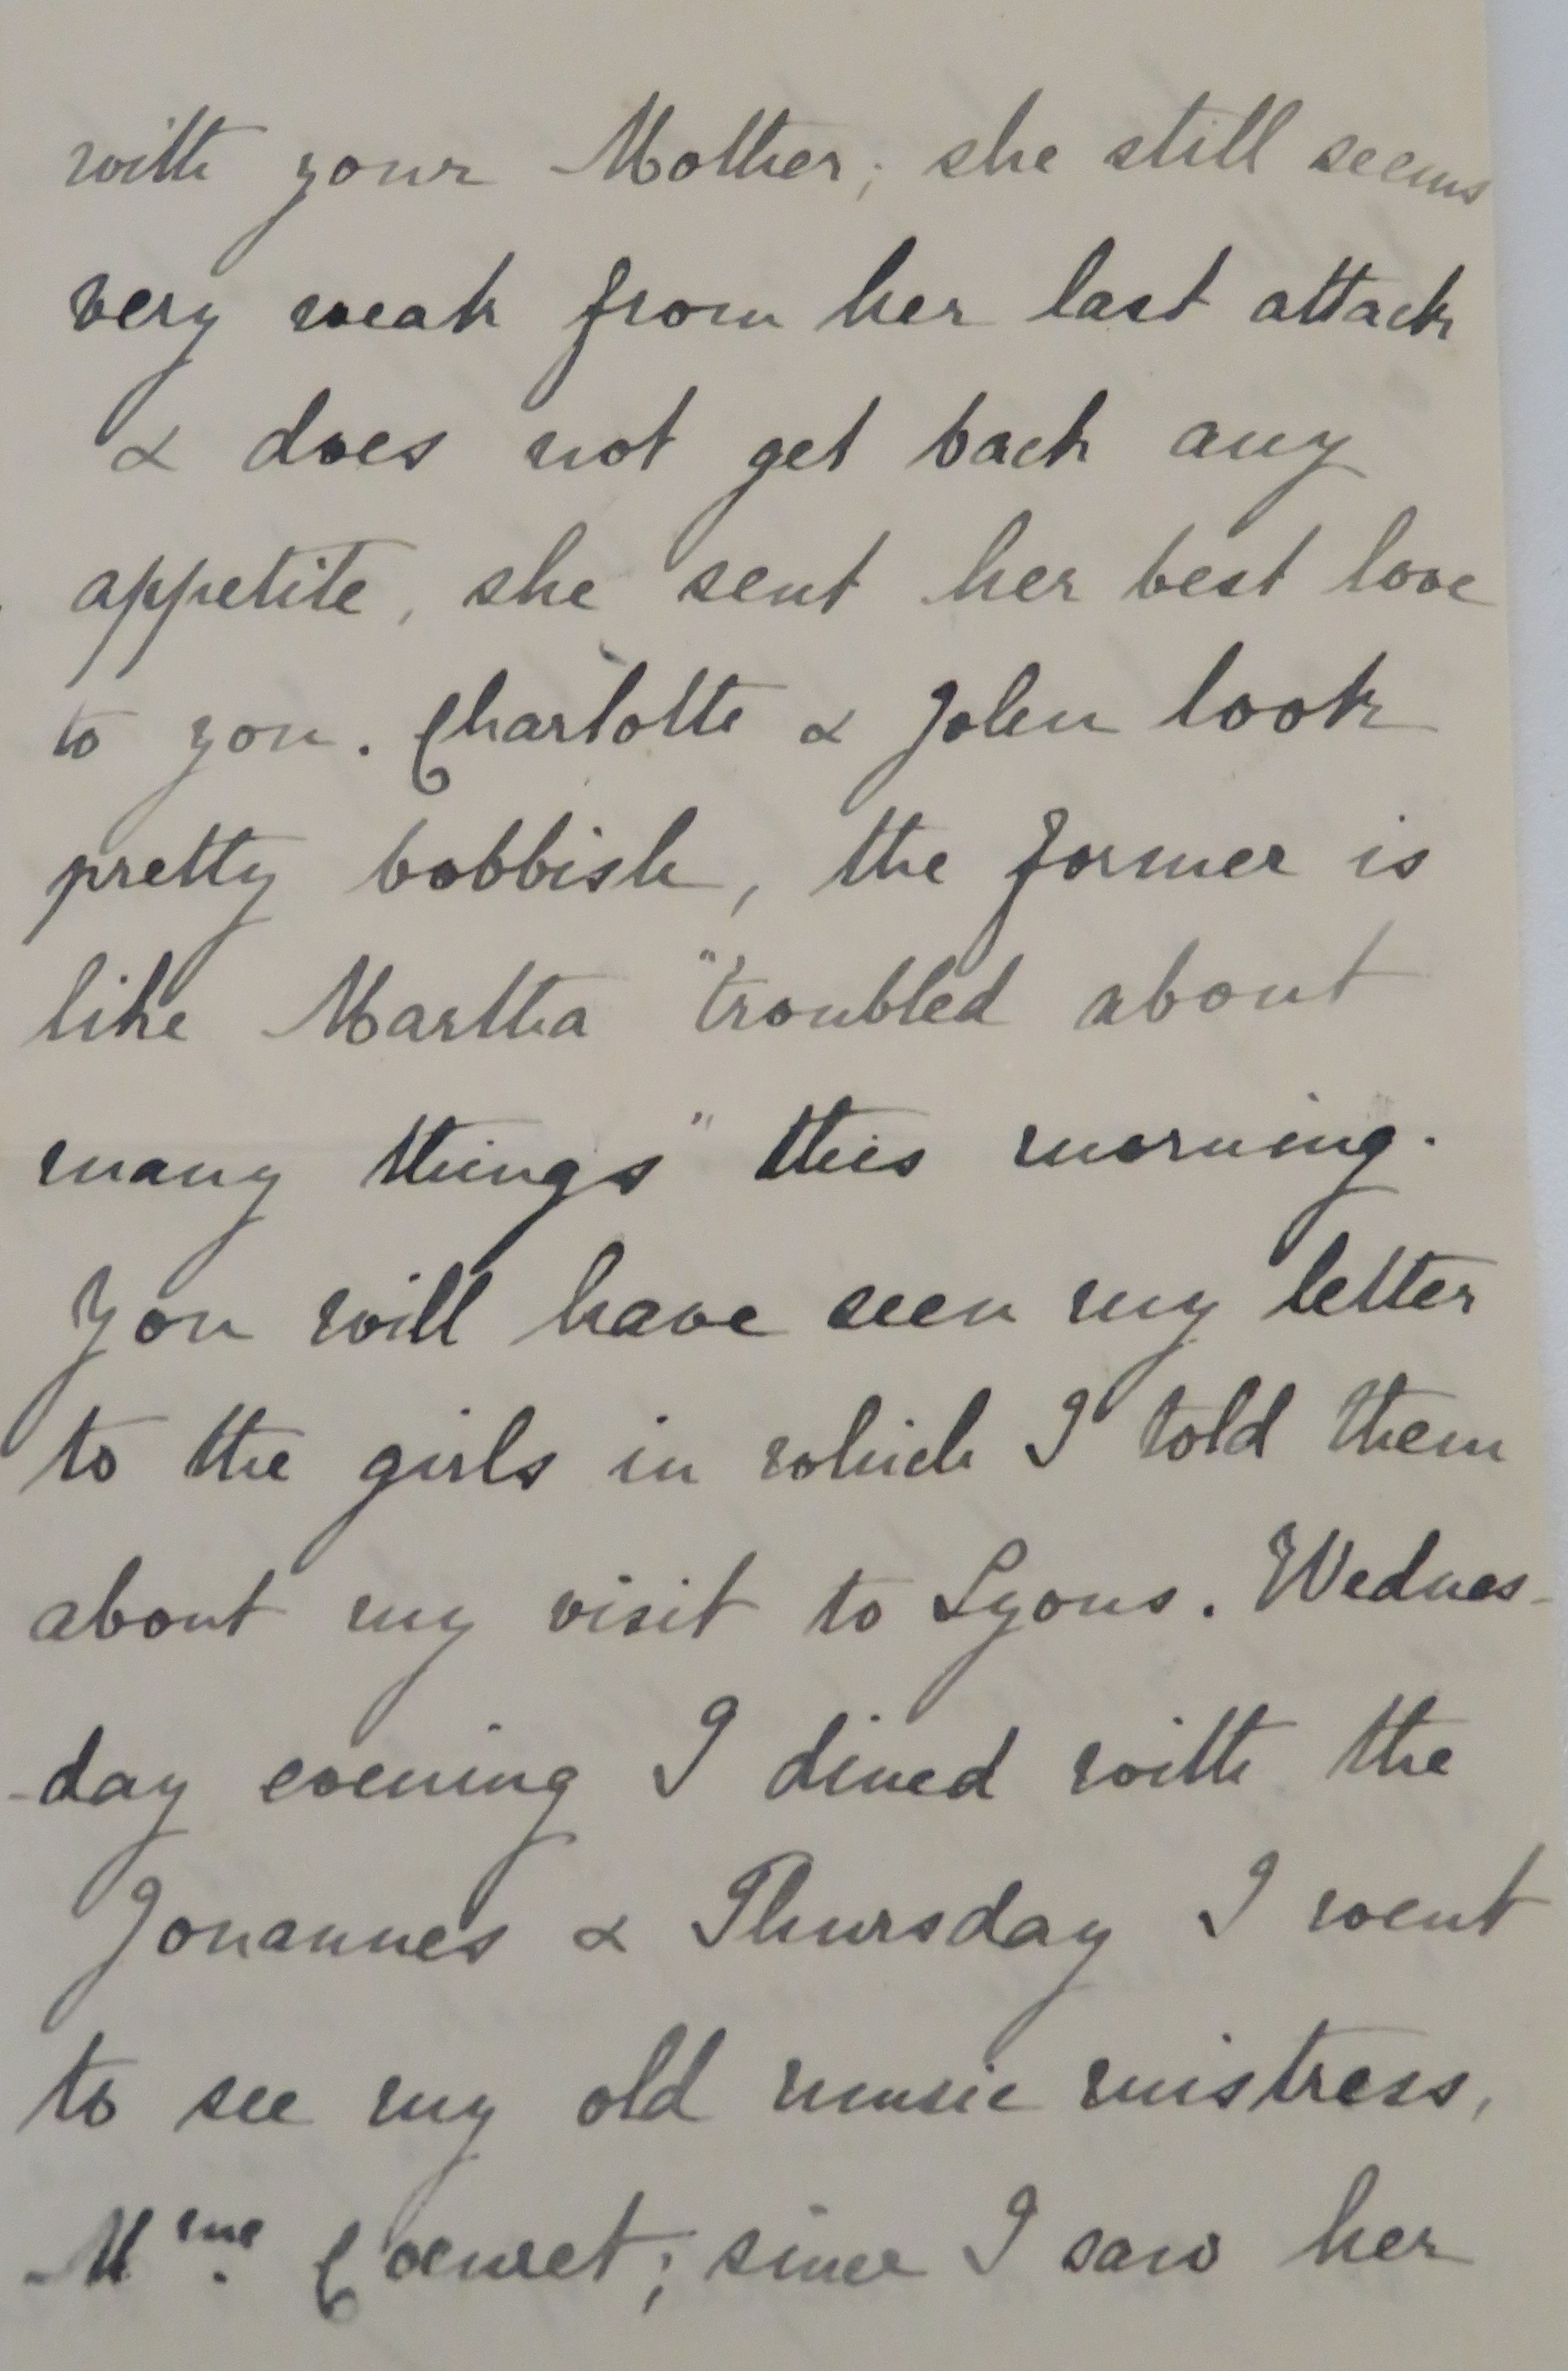 with your Mother; she still seems
very weak from her last attack
& does not get back any
appetite, she sent her best love
to you. Charlotte & John look
pretty bobbish, the former is
like Martha "troubled about
many things" this morning.
You will have seen my letter
to the girls in which I told them
about my visit to Lyons. Wednes-
-day evening I dined with the
Jouannes & Thursday I went
to see my old music mistress,
Mme. ; since I saw her